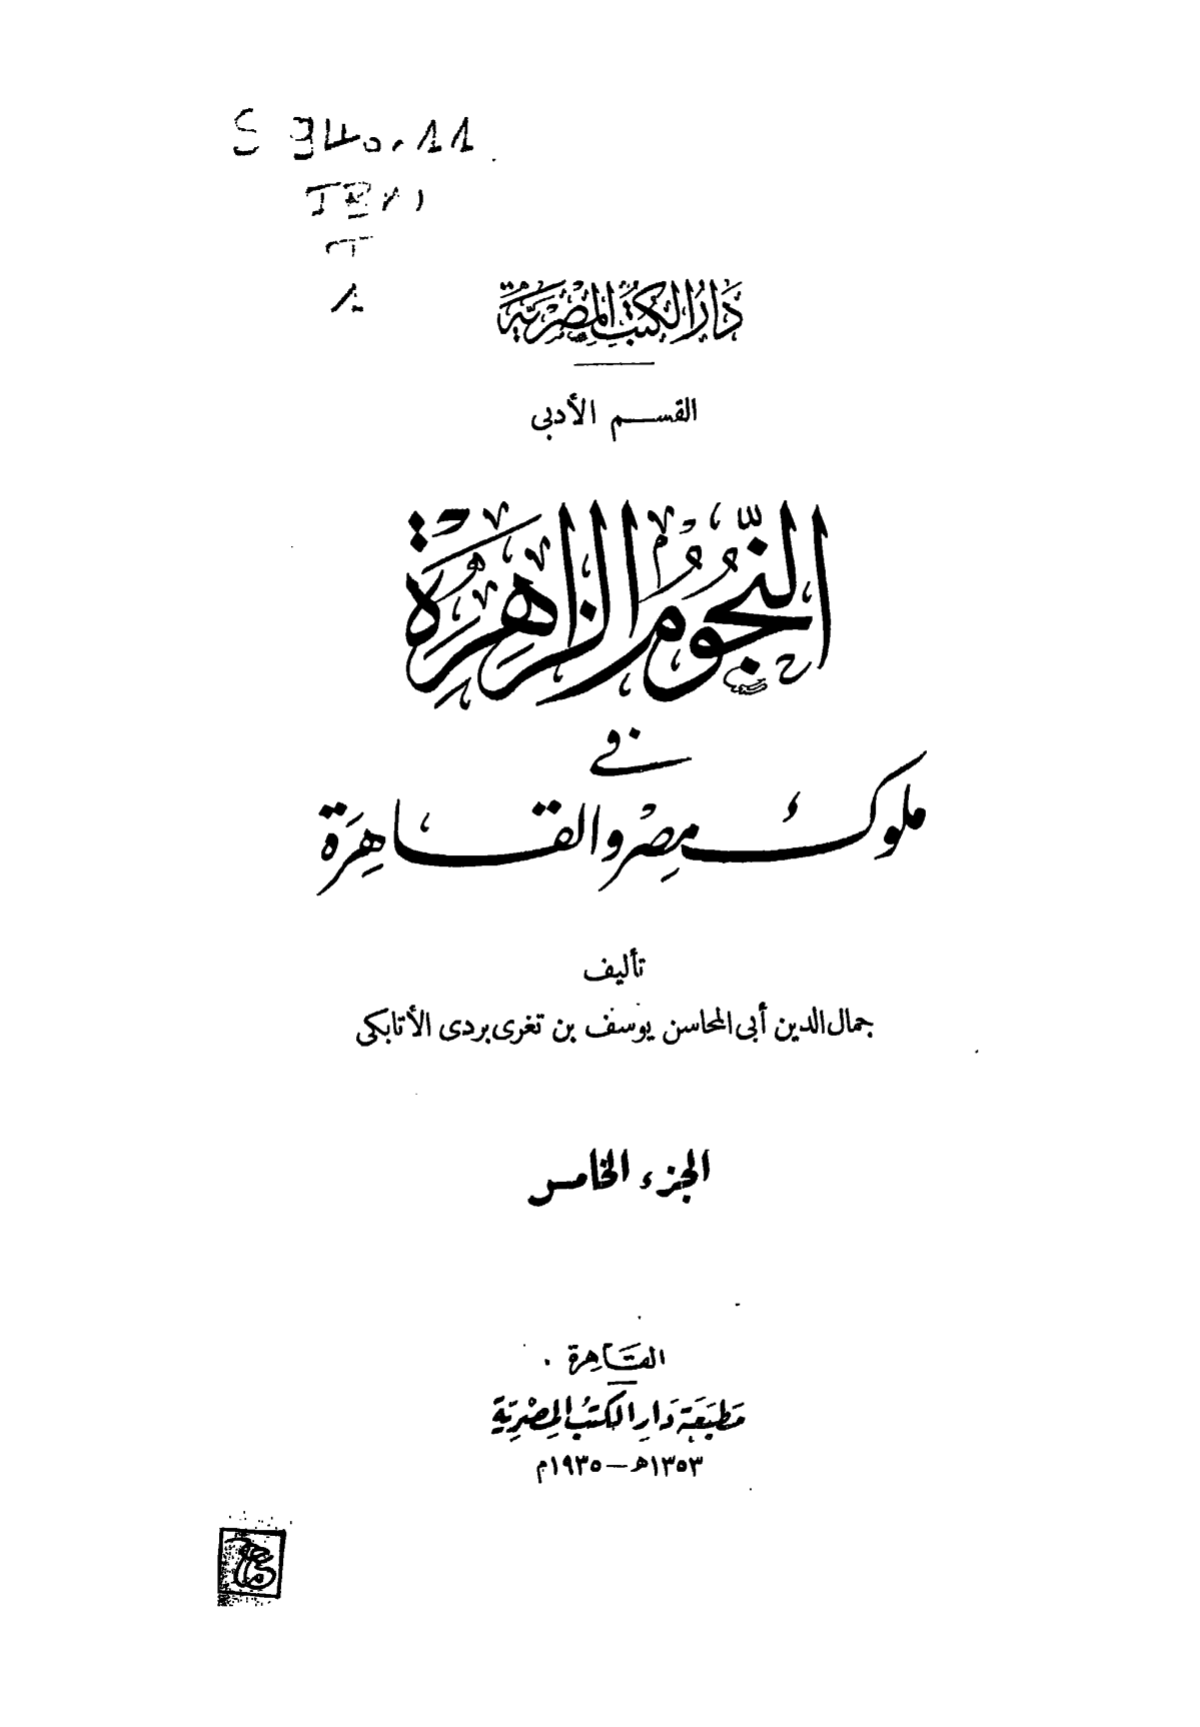 S 940.11
دَارُ الكتُبِ المِصْرِيَّة
القسم الأدبى
النُّجُومُ الزاهِرَة
فى
ملوك مِصْر والقاهِرَة
تأليف
جمال الدين أبى المحاسن يوسف بن تغرى بردى الأتابكى
الجزء الخامس
القَاهرة
مَطبَعَة دَارِ الكتُب المِصْرِيَة
١٣٥٣هـ—١٩٣٥م